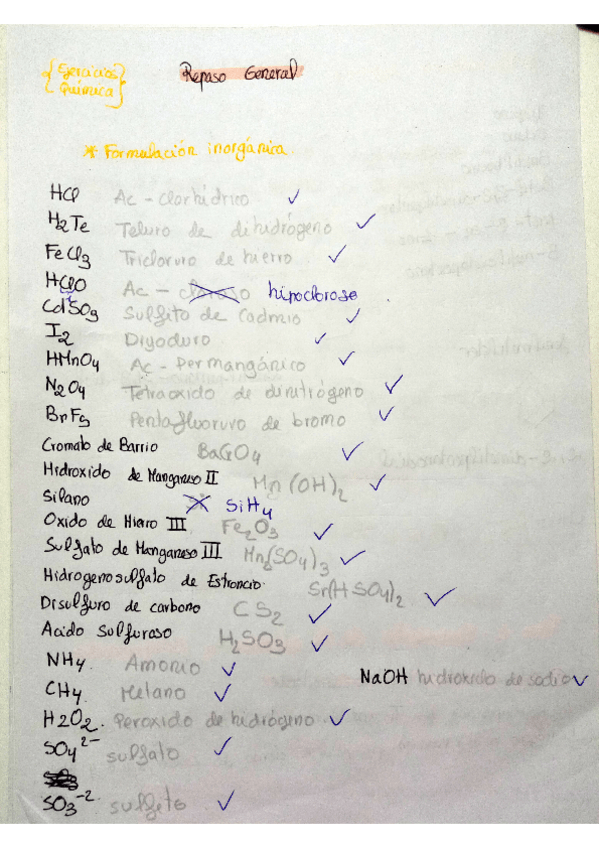 {Ejercicios}
{Química}
Repaso General
* Formulación inorgánica
HCl Ac - clorhídrico ✓
H2Te Teluro de dihidrógeno ✓
FeCl3 Tricloruro de hierro ✓
HClO Ac - cloroso hipocloroso.
CdSO3 Sulfito de Cadmio ✓
I2 Diyoduro ✓
HMnO4 Ac - Permangánico ✓
N2O4 Tetraoxido de dinitrógeno ✓
BrF5 Pentafluoruro de bromo ✓
Cromato de Barrio BaCrO4 ✓
Hidroxido de Manganeso II Mn(OH)2 ✓
Silano SiH4
Oxido de Hierro III Fe2O3 ✓
Sulfato de Manganeso III Mn2(SO4)3 ✓
Hidrogenosulfato de Estroncio Sr(HSO4)2 ✓
Disulfuro de carbono CS2 ✓
Acido Sulfuroso H2SO3 ✓
NH4. Amonio ✓
NaOH hidroxido de sodio ✓
CH4. Metano ✓
H2O2. Peroxido de hidrógeno ✓
SO4 2- sulfato ✓
SO3 -2 sulfito ✓